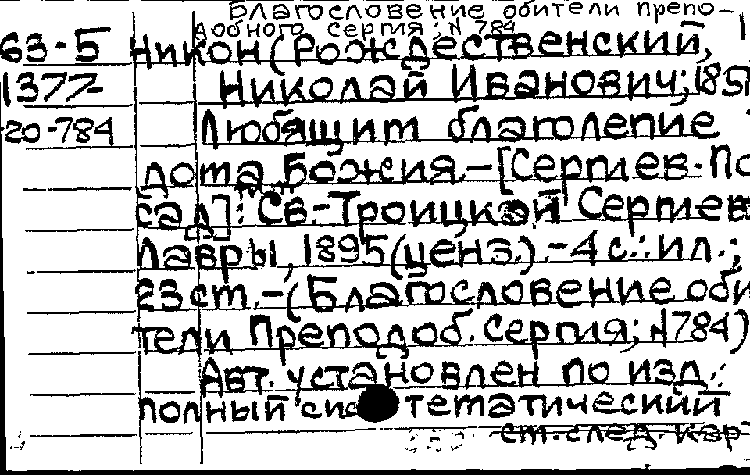 Благословение обители препо-
добного Сергия; N 784
63-5 Никон (Рождественский,
1377- Николай Иванович; 1851
20-784 Любящим благолепие
дома Божия. - [Сергиев-По
сад]: Св-Троицкой Сергиев
Лавры, 1895 (ценз.). - 4 с.: ил.;
23 cm. - (Благословение оби
тели Преподоб. Сергия; N784)
Авт. установлен по изд.:
Полный систематический
см. след. кар